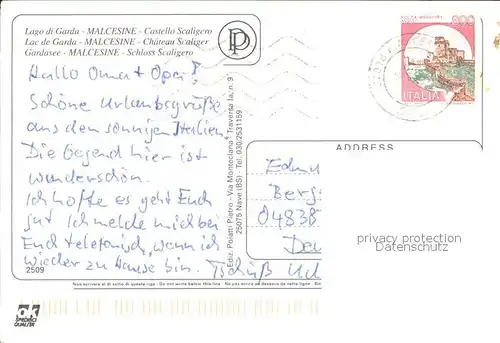 Lago di Garda - MALCESINE - Castello Scaligero
Lac de Garda - MALCESINE - Château Scaliger
Gardasee - MALCESINE - Schloss Scaligero
PP
800
ITALIA
Hallo Oma + Opa!
Schöne Urlaubsgrüße
aus dem sonnigen Italien
Die Gegend hier ist
wunderschön.
Ich hoffe es geht Euch
gut Ich melde mich bei
Euch telefonisch, wenn ich
wieder zu Hause bin. Tschüß
2509
Ediz. Polatti Pietro - Via Monteclana - Traversa 1a, n. 9
25075 Nave (BS) - Tel. 030/2531159
ADDRESS
Edmu
Berg
04838
Deu
privacy protection
Datenschutz
Non scrivere al di sotto di questa riga - Do not write below this line - Ne pas écrire au dessous de cette ligne
ok
SPECIFICI
QUALITÀ